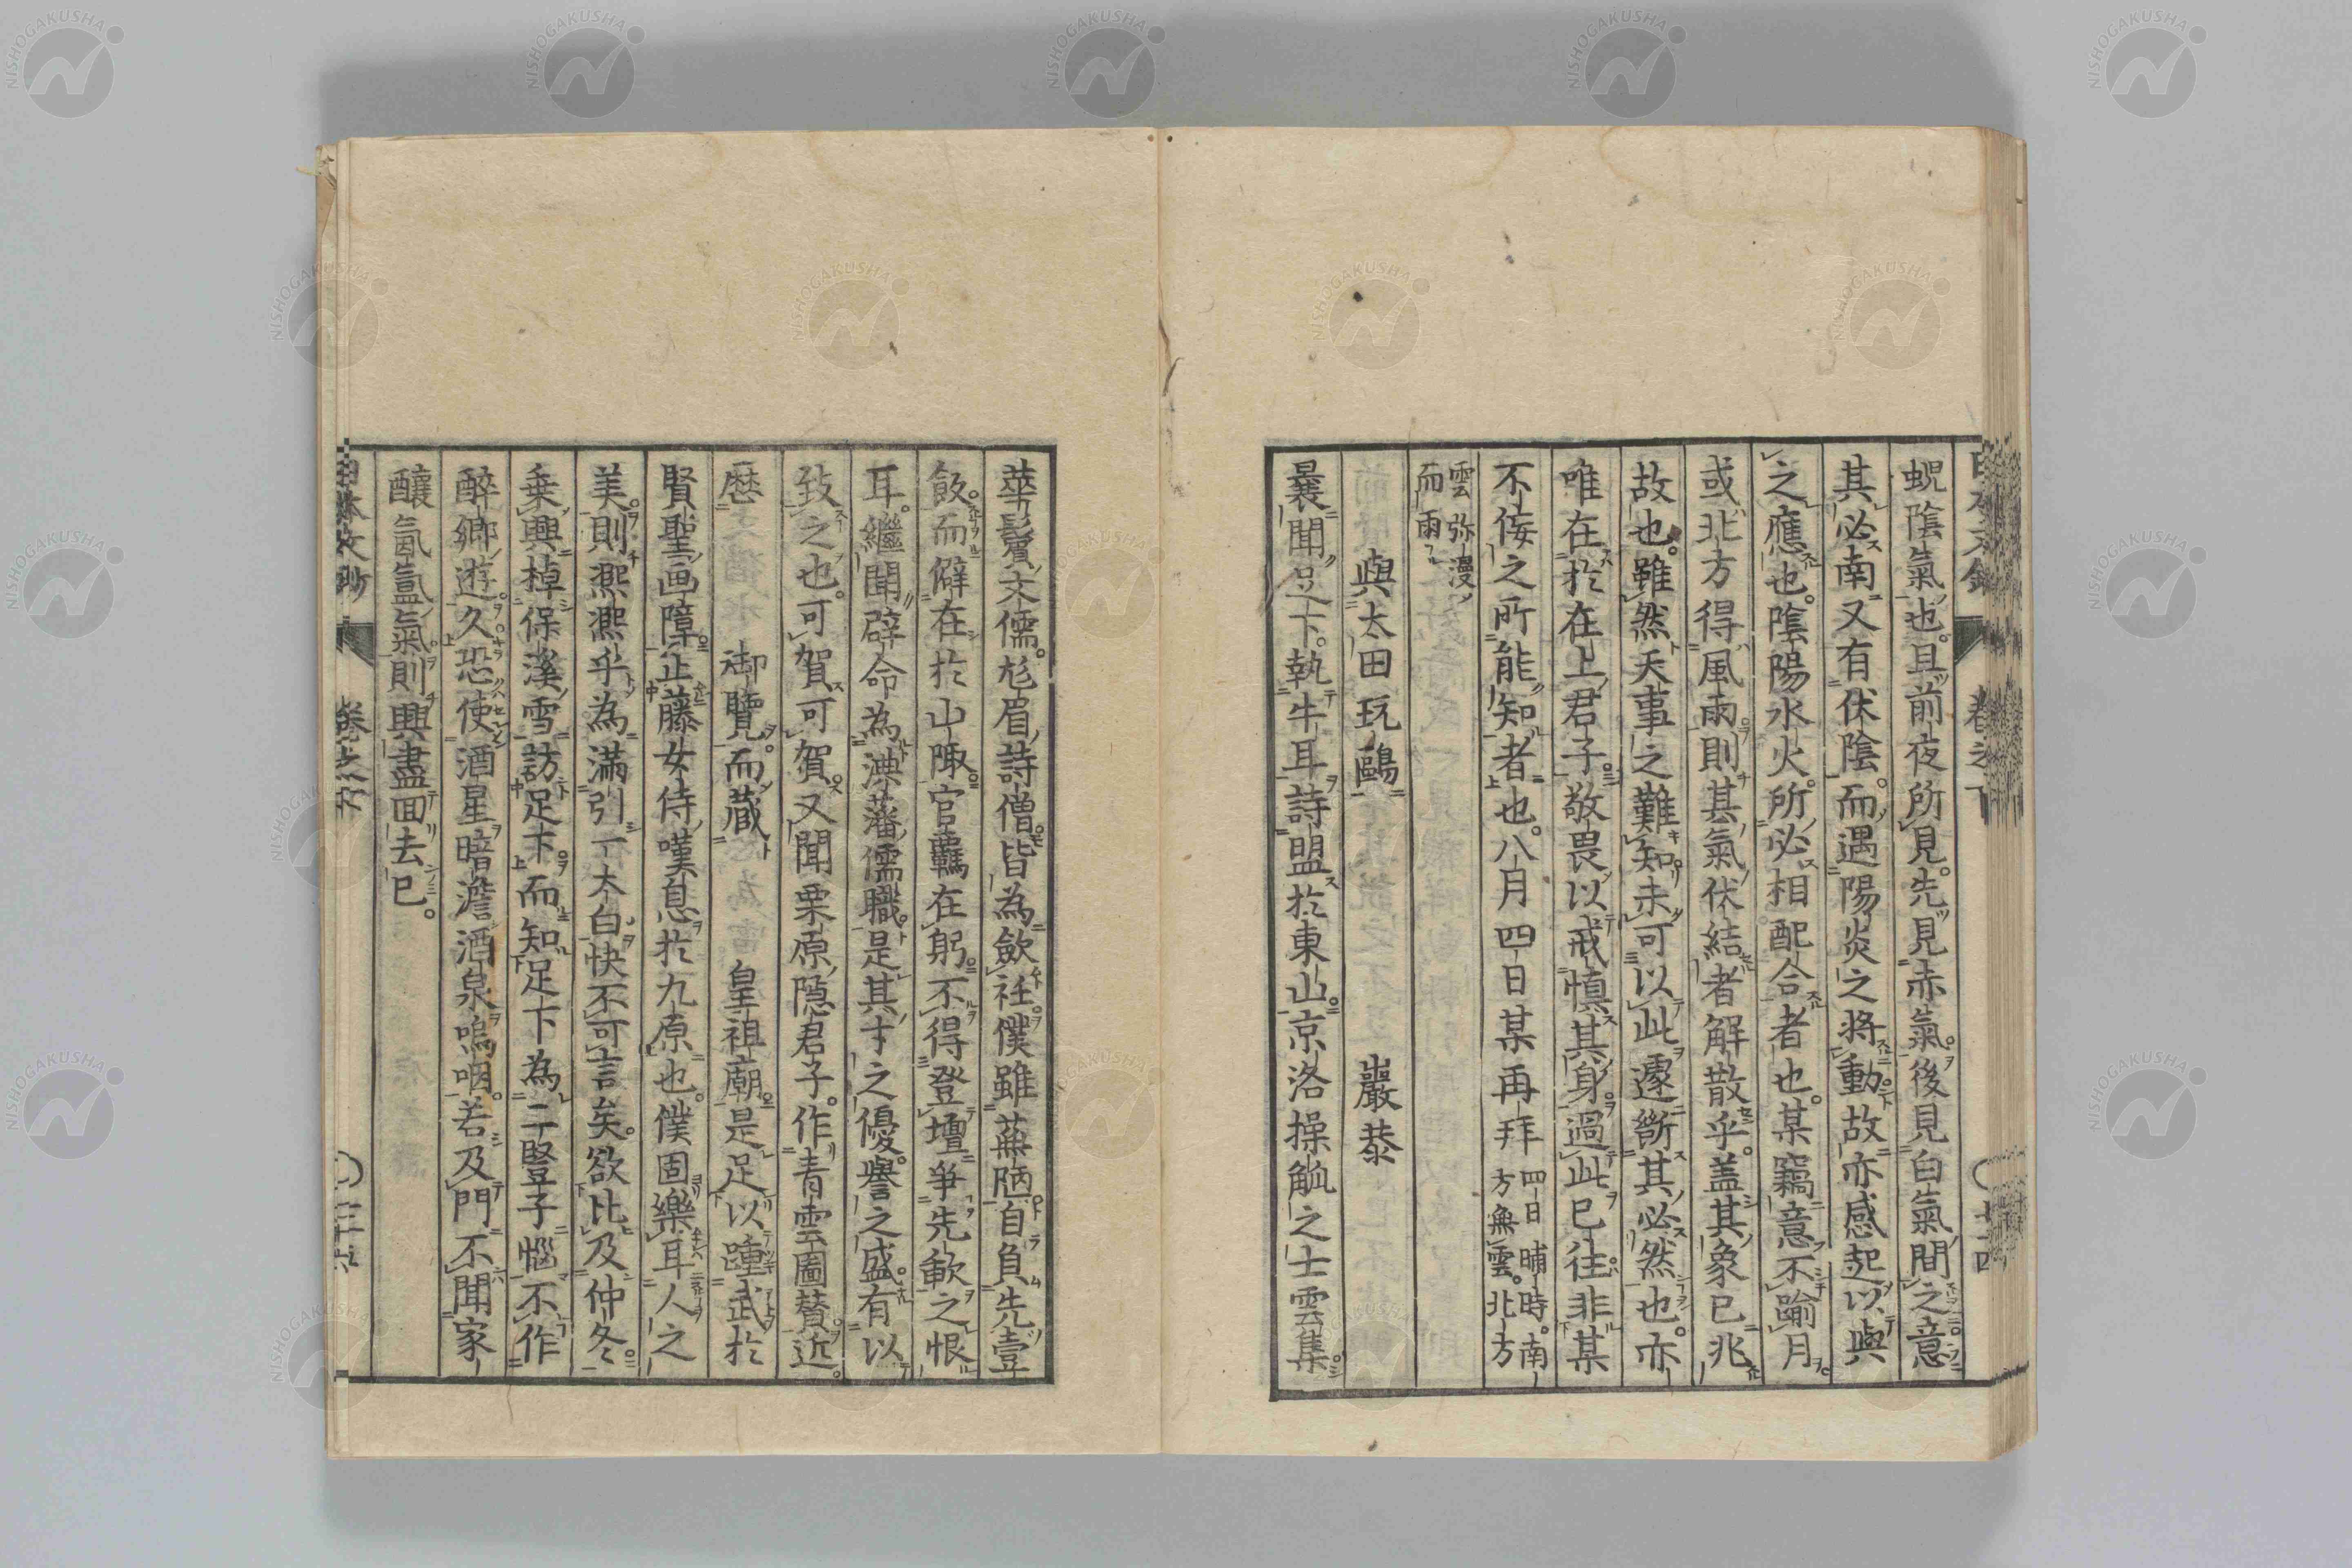 蜺陰氣也。且前夜所見。先見赤氣。後見白氣間之意
其必南又有伏陰。而遇陽炎之將動故亦感起以與
之應也。陰陽水火。所必相配合者也。某竊意不踰月
或北方得風雨則其氣伏結者解散乎。蓋其象已兆
故也。雖然天事之難知未可以此遽斷其必然也。亦
唯在於在上君子。敬畏以戒慎其身。過此已往非某
不佞之所能知者也。八月四日某再拜
四日晡時。南
方無雲。北方
雲弥漫
而雨
與太田玩鷗 巖恭
曩聞足下。執牛耳詩盟於東山。京洛操觚之士雲集。
華鬢大儒。尨眉詩僧。皆為斂衽。僕雖蕪陋自負先壹
飲。而僻在於山陬。官羈在躬。不得登壇爭先歃之恨
耳。繼聞辟命為澳藩儒職。是其才之優。譽之盛。有以
致之也。可賀可賀。又聞栗原隱君子。作青雲圖贊。近
歴
御覽。而蔵
皇祖廟。是足以踵武於
賢聖画障。止藤女侍嘆息於九原也。僕固樂耳人之
美。則凞凞乎為滿引一大白快不可言矣。欲比及仲冬。
乗興棹保溪雪訪足下。而知足下為二豎子惱不作
醉鄉遊久。恐使酒星暗澹酒泉嗚咽。若及門不聞家
釀氤氳氣。則興盡面去已。
卷之下